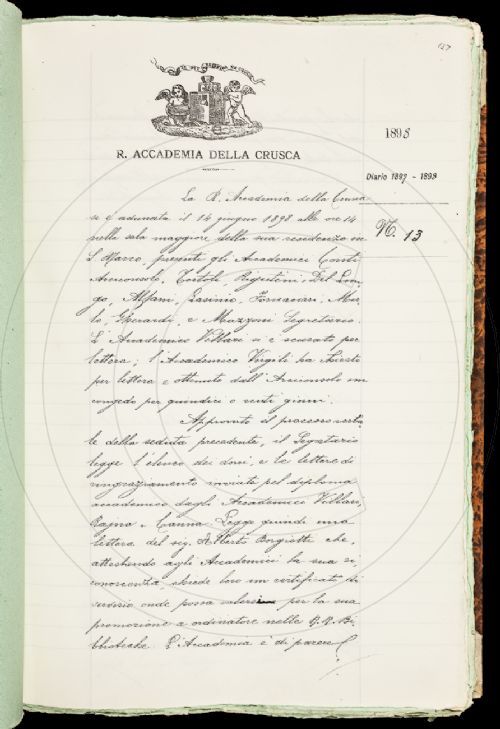 127
R. ACCADEMIA DELLA CRUSCA
1898
Diario 1897 - 1898
N. 13
La R. Accademia della Crusca
si è adunata il 14 giugno 1898 alle ore 14
nella sala maggiore della sua residenza in
S. Marco, presenti gli Accademici Conti
Arciconsolo, Tortoli, Rigutini, Del Lun-
go, Alfani, Lasinio, Fornaciari, Mur-
lo, Gherardi, e Mazzoni Segretario.
L'Accademico Villari si è scusato per
lettera; l'Accademico Virgili ha chiesto
per lettera e ottenuto dall'Arciconsolo un
congedo per quindici o venti giorni.
Approvato il processo verba-
le della seduta precedente, il Segretario
legge l'elenco dei doni, e le lettere di
ringraziamento inviate pel diploma
accademico dagli Accademici Villari,
Rajna e Canna. Legge quindi una
lettera del sig. Alberto che,
attestando agli Accademici la sua ri-
conoscenza, chiede loro un certificato di
servizio onde possa valersi per la sua
promozione a ordinatore nelle R. R. Bi-
blioteche. L'Accademia è di parere